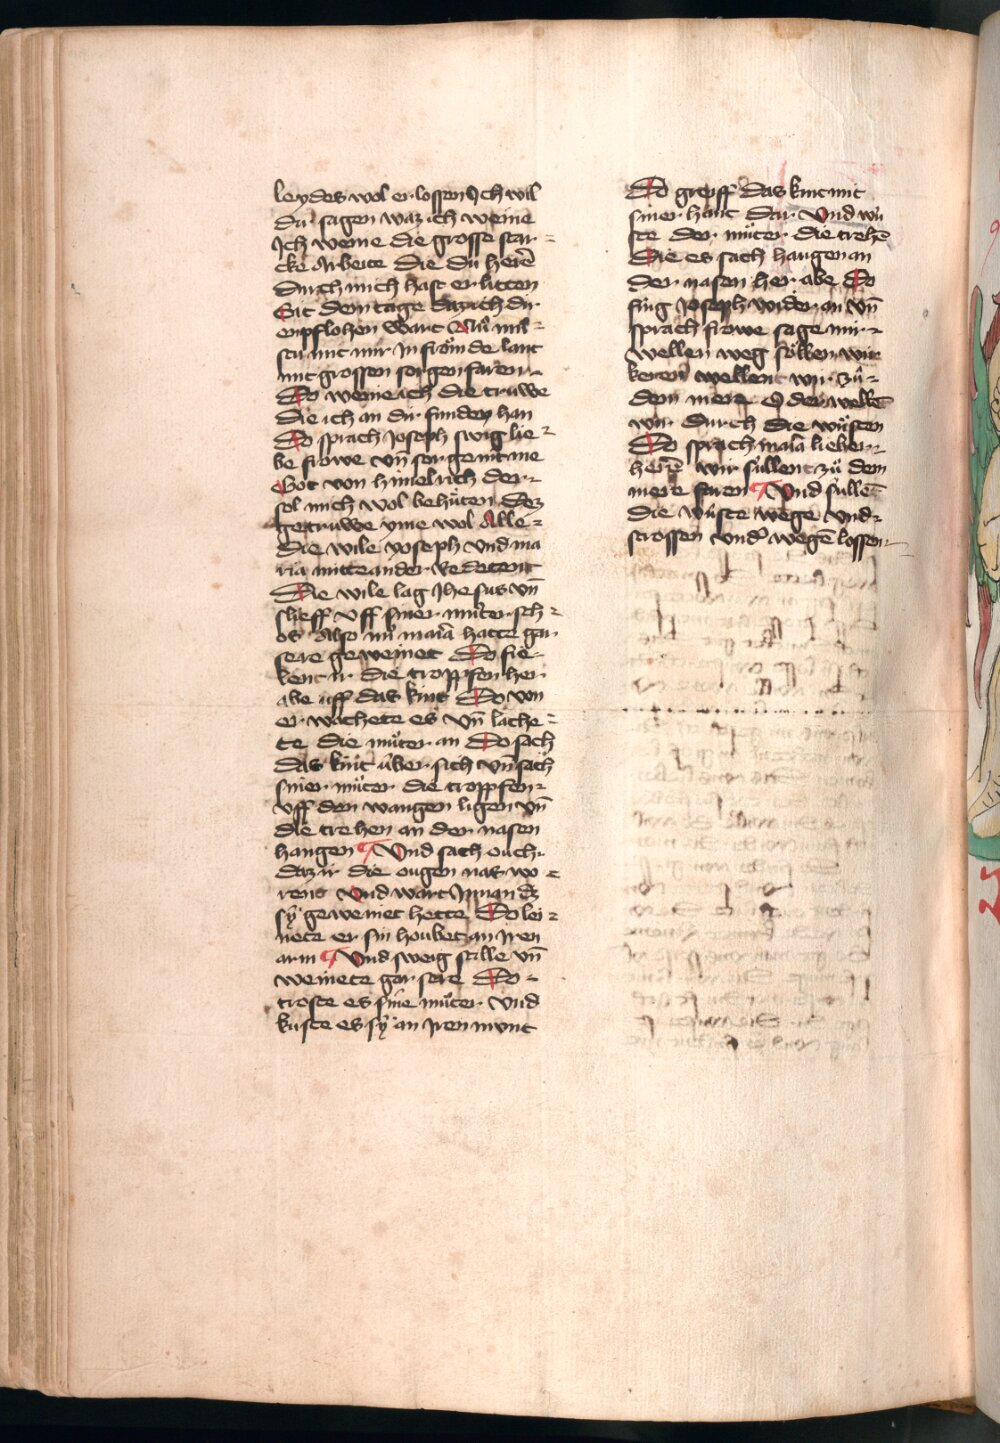 leydes wol er lossen Ich wil
dir sagen waz ich weine
Ich weine die grosse star-
cke Arbeite die du herē
durch mich hast er litten
Sit dem tage daz ich dir
enpflohen wart Nuͦ mûs-
stu mit mir In froͤmde lant
mit grossen sorgen faren
Do weine ich die truwe
die ich an dir funden han
Do sprach Joseph swig lie-
be frowe vn̄ sorge nit me
Got von himelrich der
sol mich wol behuͤten Dez
getruwe yme wol Alle-
die wile yoseph vnd ma
ria mitteander redetent
Die wile lag Jhesus vn̄
slieff vff siner muͦter sch-
os Also nuͦ maīa hatte gar
sere geweinet Do sie-
lent ir die troppfen her
abe uff das kint Do von
er wachete es vn̄ lache-
te die muͦter an Do sach
das kint über sich vn̄ sach
siner muͦter die troppfen
vff den wangen ligen vn̄
die trehen an der nasen
hangen ¶ Vnd sach ouch
daz ir die ougen nas wo-
rent Vnd wart Innan dz
sÿ geweinet hette Do lei-
nete er sin houbet an Iren
arm ¶ Vnd sweig stille vn̄
weinete gar sere Do-
troste es sine muͦter Vnd
kuste es sÿ an Iren munt
Do greiff das kint mit
siner hant dar Vnd wu
ste der muͦter die trehē
Die es sach hangen an
der nasen her abe Do
fing Joseph wider an vn̄
sprach frowe sage mir
wellen weg soͤllen wir
keren wellent wir zuͦ-
dem mere Oder wellē
wir durch die wuͤsten
Do sprach maīa lieber
herre wir sullent zuͦ dem
mere faren ¶ Vnd sullē
die wuͤste wege Vnd
strossen vnd wegē lossen